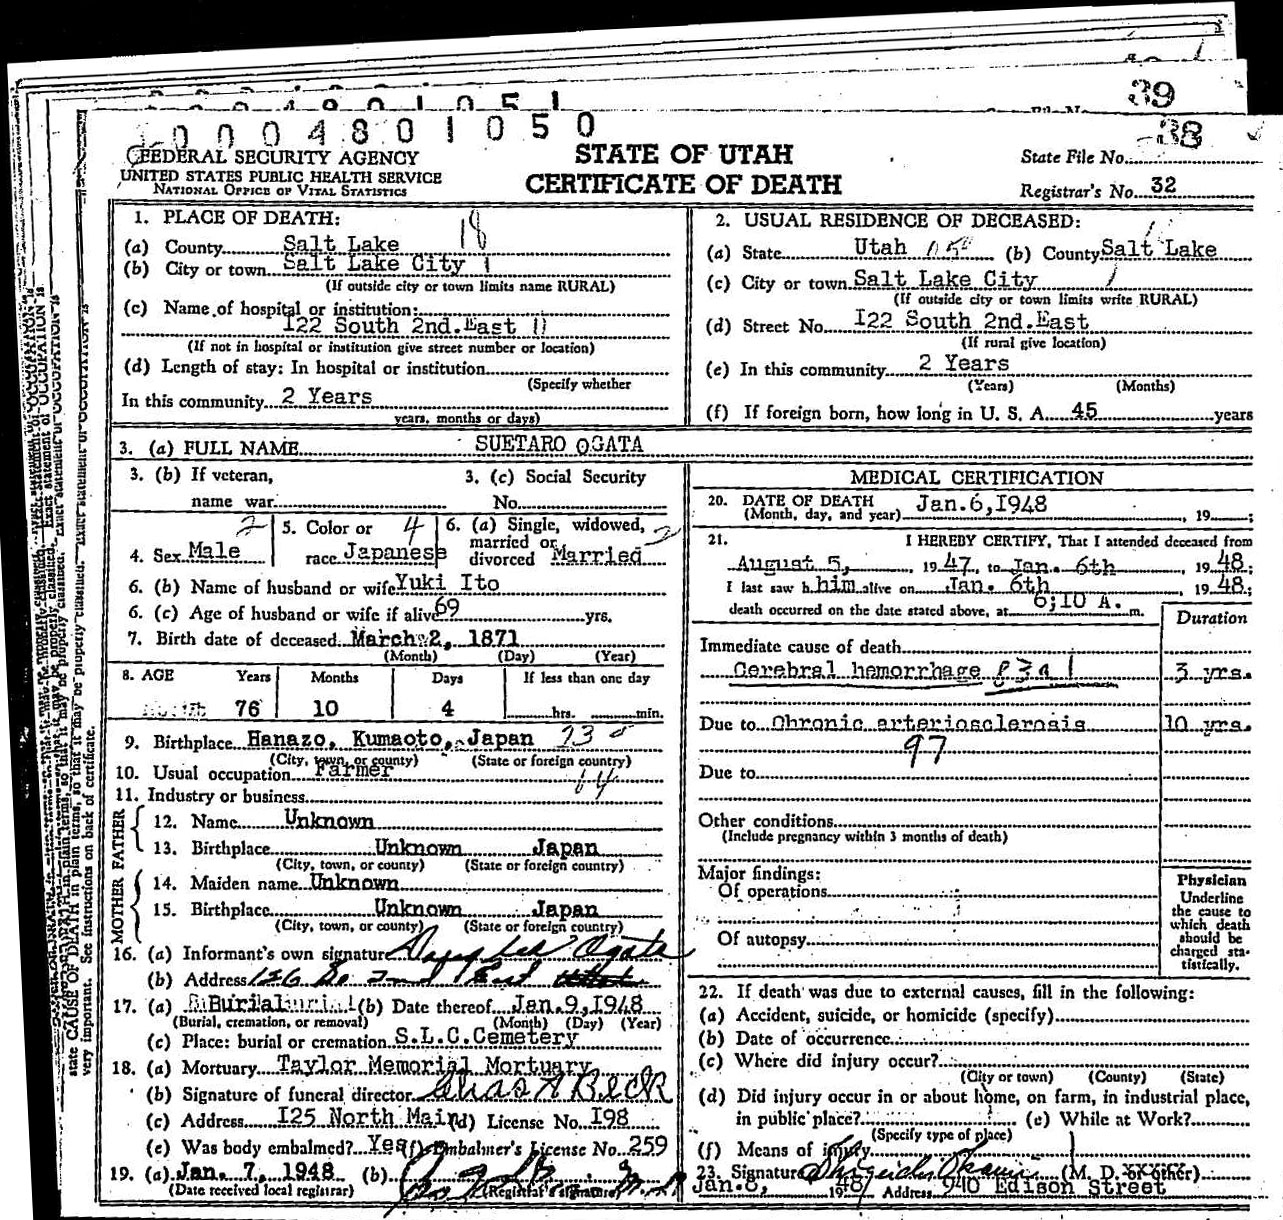 39
0004801050
38
FEDERAL SECURITY AGENCY
UNITED STATES PUBLIC HEALTH SERVICE
NATIONAL OFFICE OF VITAL STATISTICS
STATE OF UTAH
CERTIFICATE OF DEATH
State File No.
Registrar's No. 32
1. PLACE OF DEATH: 18
(a) County Salt Lake
(b) City or town Salt Lake City 1
(If outside city or town limits name RURAL)
(c) Name of hospital or institution:
I22 South 2nd.East
(If not in hospital or institution give street number or location)
(d) Length of stay: In hospital or institution
(Specify whether
In this community 2 Years
years, months or days)
2. USUAL RESIDENCE OF DECEASED:
(a) State Utah (b) County Salt Lake
(c) City or town Salt Lake City
(If outside city or town limits write RURAL)
(d) Street No. I22 South 2nd.East
(If rural give location)
(e) In this community 2 Years
(Years) (Months)
(f) If foreign born, how long in U. S. A. 45 years
3. (a) FULL NAME SUETARO OGATA
3. (b) If veteran,
name war
3. (c) Social Security
No.
4. Sex Male 2
5. Color or 4
race Japanese
6. (a) Single, widowed,
married or
divorced Married 2
6. (b) Name of husband or wife Yuki Ito
6. (c) Age of husband or wife if alive 69 yrs.
7. Birth date of deceased March 2, 1871
(Month) (Day) (Year)
8. AGE Years Months Days If less than one day
76 10 4 hrs. min.
9. Birthplace Hanazo, Kumaoto, Japan
(City, town, or county) (State or foreign country)
10. Usual occupation Farmer
11. Industry or business
FATHER
12. Name Unknown
13. Birthplace Unknown Japan
(City, town, or county) (State or foreign country)
MOTHER
14. Maiden name Unknown
15. Birthplace Unknown Japan
(City, town, or county) (State or foreign country)
16. (a) Informant's own signature Ogata
(b) Address
17. (a) Burial (b) Date thereof Jan.9,1948
(Burial, cremation, or removal) (Month) (Day) (Year)
(c) Place: burial or cremation S.L.C.Cemetery
18. (a) Mortuary Taylor Memorial Mortuary
(b) Signature of funeral director Chas A Beck
(c) Address I25 North Main (d) License No. I98
(e) Was body embalmed? Yes (f) Embalmer's License No. 259
19. (a) Jan. 7, 1948 (b)
(Date received local registrar) (Registrar's signature)
MEDICAL CERTIFICATION
20. DATE OF DEATH Jan.6,1948
(Month, day, and year) , 19 ;
21. I HEREBY CERTIFY, That I attended deceased from
August 5, 19 47, to Jan. 6th 19 48;
I last saw h him alive on Jan. 6th 19 48;
death occurred on the date stated above, at 6;10 A. m.
Duration
Immediate cause of death
Cerebral hemorrhage 83a 1 3 yrs.
Due to Chronic arteriosclerosis 10 yrs.
97
Due to
Other conditions
(Include pregnancy within 3 months of death)
Major findings:
Of operations
Of autopsy
Physician
Underline
the cause to
which death
should be
charged sta-
tistically.
22. If death was due to external causes, fill in the following:
(a) Accident, suicide, or homicide (specify)
(b) Date of occurrence
(c) Where did injury occur?
(City or town) (County) (State)
(d) Did injury occur in or about home, on farm, in industrial place,
in public place? (e) While at Work?
(Specify type of place)
(f) Means of injury
23. Signature (M. D. or other)
Jan.8, 19 48 Address 940 Edison Street
state CAUSE OF DEATH in plain terms, so that it may be properly classified. Exact statement of OCCUPATION is
very important. See instructions on back of certificate.